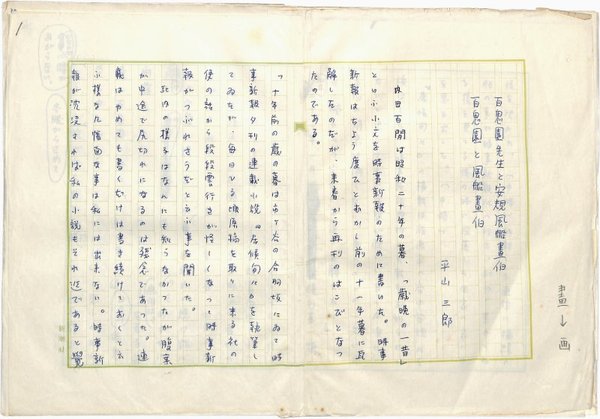 百鬼園先生と安規風船畫伯
百鬼園と風船畫伯
平山三郎
内田百閒は昭和二十年の暮、「歳晩の一昔」
といふ小文を時事新報のために書いた。時事
新報はちょう度ひとむかし前の十一年暮に瓦
解したのだが、来春から再刊のはこびとなつ
たのである。
「十年前の歳の暮は市ケ谷の合羽坂にゐて時
事新報夕刊の連載小説「居候匇々」を執筆し
てゐたが、毎日ひる頃原稿を取りに来る社の
使の話から段段雲行きが怪しくなつて時事新
報がつぶれさうだと云ふ事を聞いた。
社内の様子はなんにも知らなかつたが腹案
が中途で尻切れになるのは残念であつた。連
載はやめても書くだけは書き続けておくと云
ふ様なた情面な事は私には出来ない。時事新
報が沈没すれば私の小説もそれ迄であると覺
畫→画
1